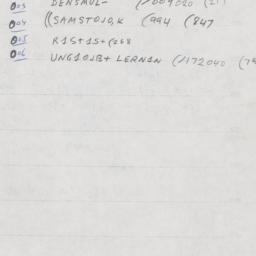 003 DENSMUL- (/009020 (21
004 ((SAMSTOJO,K (994 (847
005 R1S+1S+(268
006 UNG10JB+ LERN1N (/172040 (79